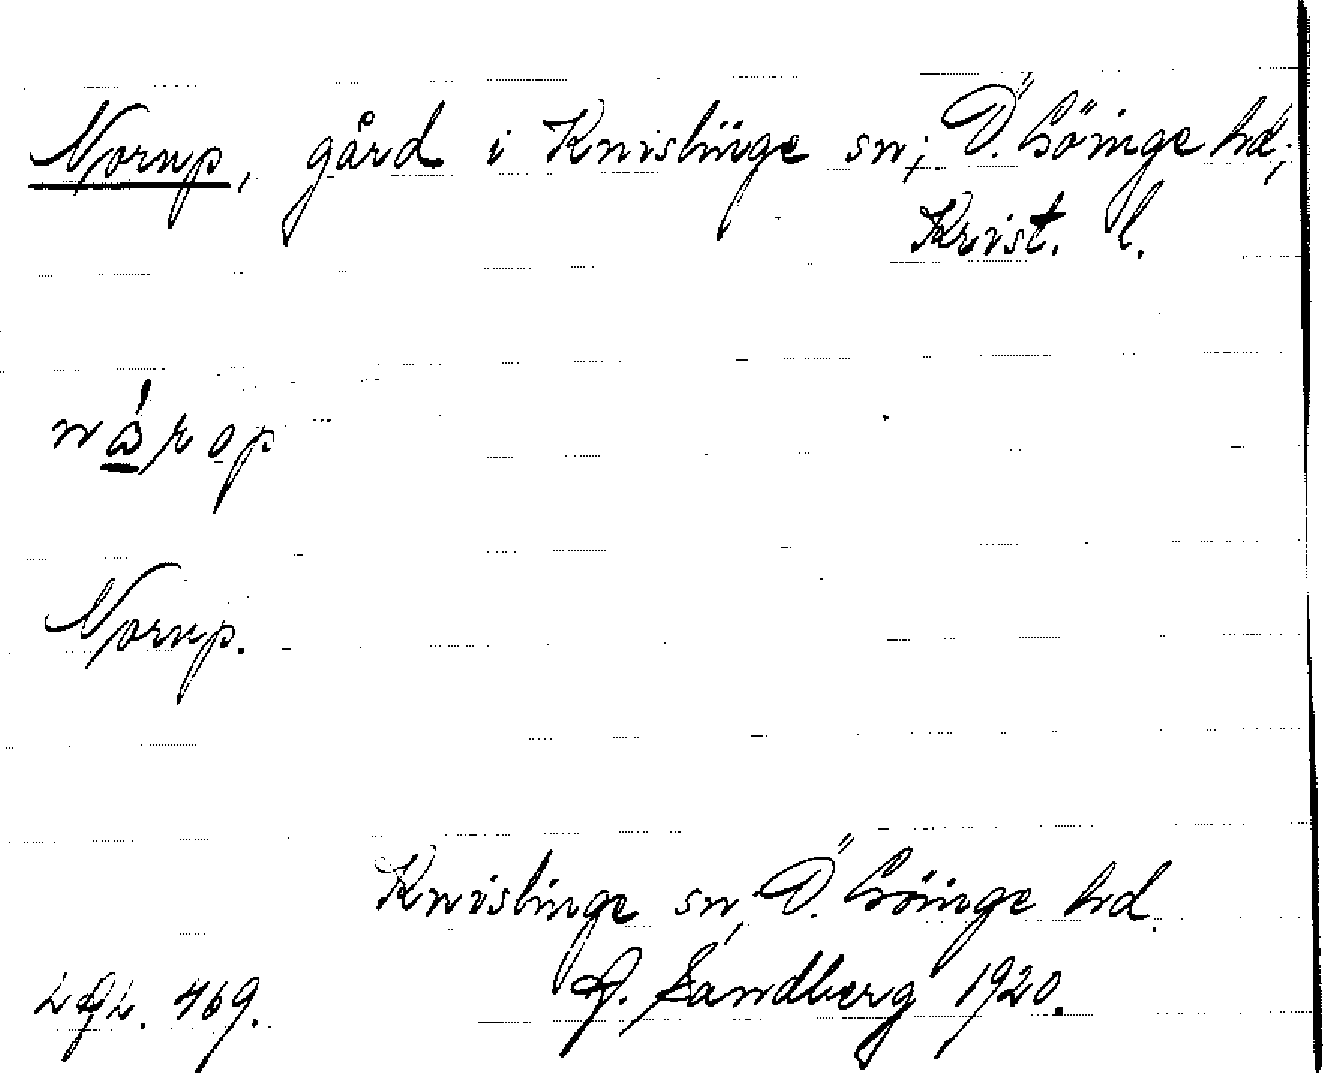 Norup, gård i Knislinge sn; Ö. Göinge hd;
Krist. l.
nárop
Norup.
Knislinge sn, Ö. Göinge hd.
Sandberg 1920.